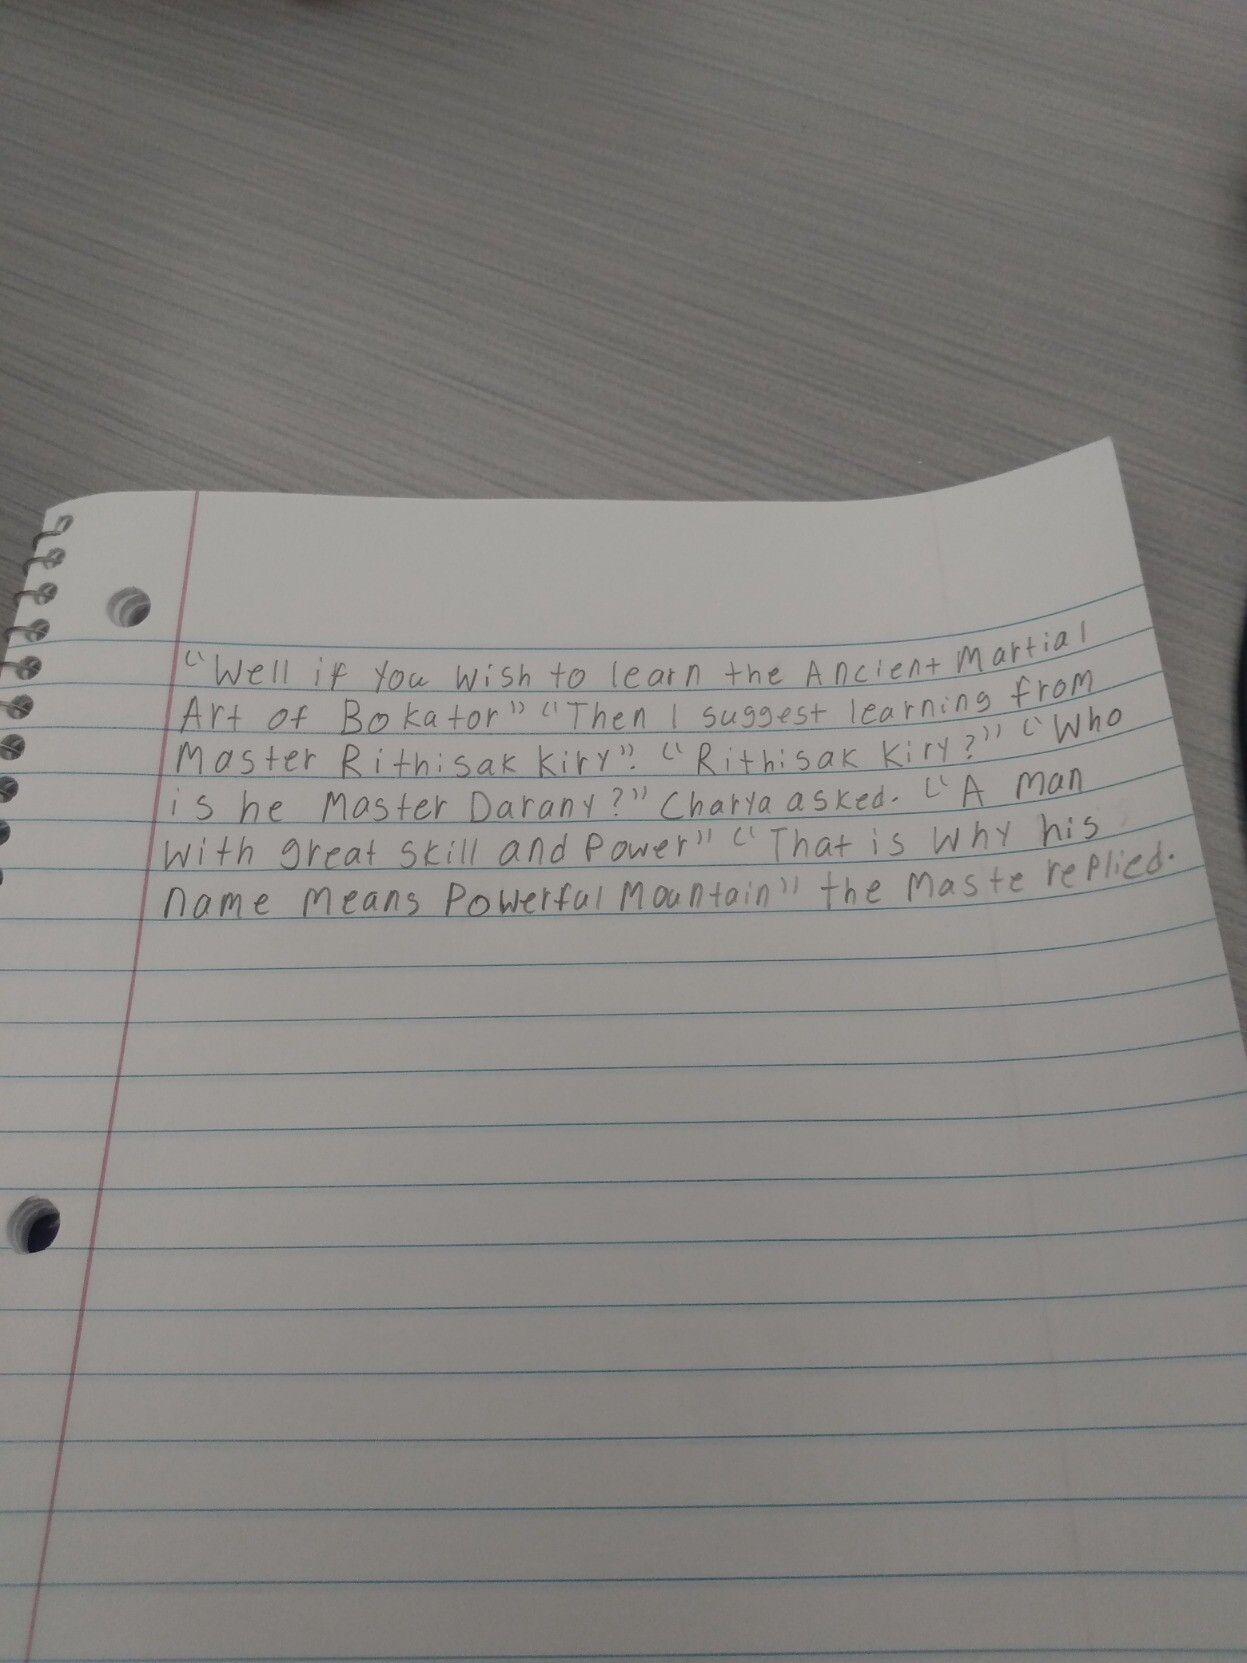 “Well if you wish to learn the Ancient Martial
Art of Bokator” “Then I suggest learning from
Master Rithisak Kiry”. “Rithisak Kiry?” “Who
is he Master Darany?” Charya asked. “A man
with great skill and Power” “That is why his
name means Powerful Mountain” the Maste replied.